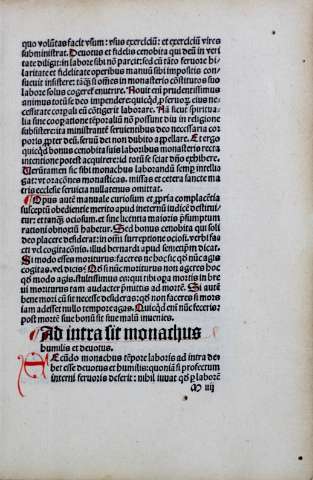 quo volūtas facit vsum: vsus exercitiū: et exercitiū vires
subministrat. Deuotus et fidelis cenobita qui deū in veri
tate diligit: in labore sibi nō parcit: sed cū tāto feruore hi⸗
laritate et fidelitate operibus manuū sibi impositis con⸗
sueuit insistere: tāqȝ si oīnes in monasterio cōstitutos suo
labore solus cogeret̄ enutrire. Nouit em̄ prudentissimus
animus totū se deo impendere: quicqd̓ ꝓ seruoꝝ eius ne⸗
cessitate corꝑali eū cōtigerit laborare. Nā sicut spiritua⸗
lia sine cooꝑatione tēporaliū nō possunt diu in religione
subsistere: ita ministrantē seruientibus deo necessaria cor
poris ꝓpter deū, seruū dei non dubito appellare. Et ergo
quicqd̓ bonus cenobita suis laboribus monasterio recta
intentione potest acquirere: id totū se sciat dn̄o exhibere.
Verūtamen sic sibi monachus laborandū semꝑ intelli⸗
gat: vt oracōnes monasticas, missas et cetera sancte ma
tris ecclesie seruicia nullatenus omittat.
Opus autē manuale curiosum et ꝓpria complacētia
susceptū obedientie merito apud ineternū iudicē destitui⸗
tur: et tranqȝ ociosum, et sine licentia maioris ꝓ̄sumptum
rationi obnoxiū habetur. Sed bonus cenobita qui soli
deo placere desiderat: in om̄i surreptione ocioſi, verbi fas
vel cogitacōnis, illud bernardi apud semetip̄m dicat.
Si modo esses moriturus: faceres ne hoc sic qd̓ nūc agis
cogitas, vel dicis? Qd̓ si nūc moriturus non ageres hoc
qd̓ modo agis, stultissimus es: qui tibi opa mortis in bre
ui moriturus tam audacter ꝓ̄mittis ad mortē. Si autē
bene mori cū sit necesse desideras: qd̓ non faceres si mors
iam adesset nullo tempore agas. Quicqd̓ em̄ nūc feceris:
post mortē siue bonū sit siue malū inuenies.
Ad intra sit monachus
humilis et deuotus.
Secūdo monachus tp̄ore laboris ad intra de⸗
bet esse deuotus et humilis: quoniā si profectum
interni feruoris deserit: nihil iuuat qd̓ ꝑ laborē
M iiij